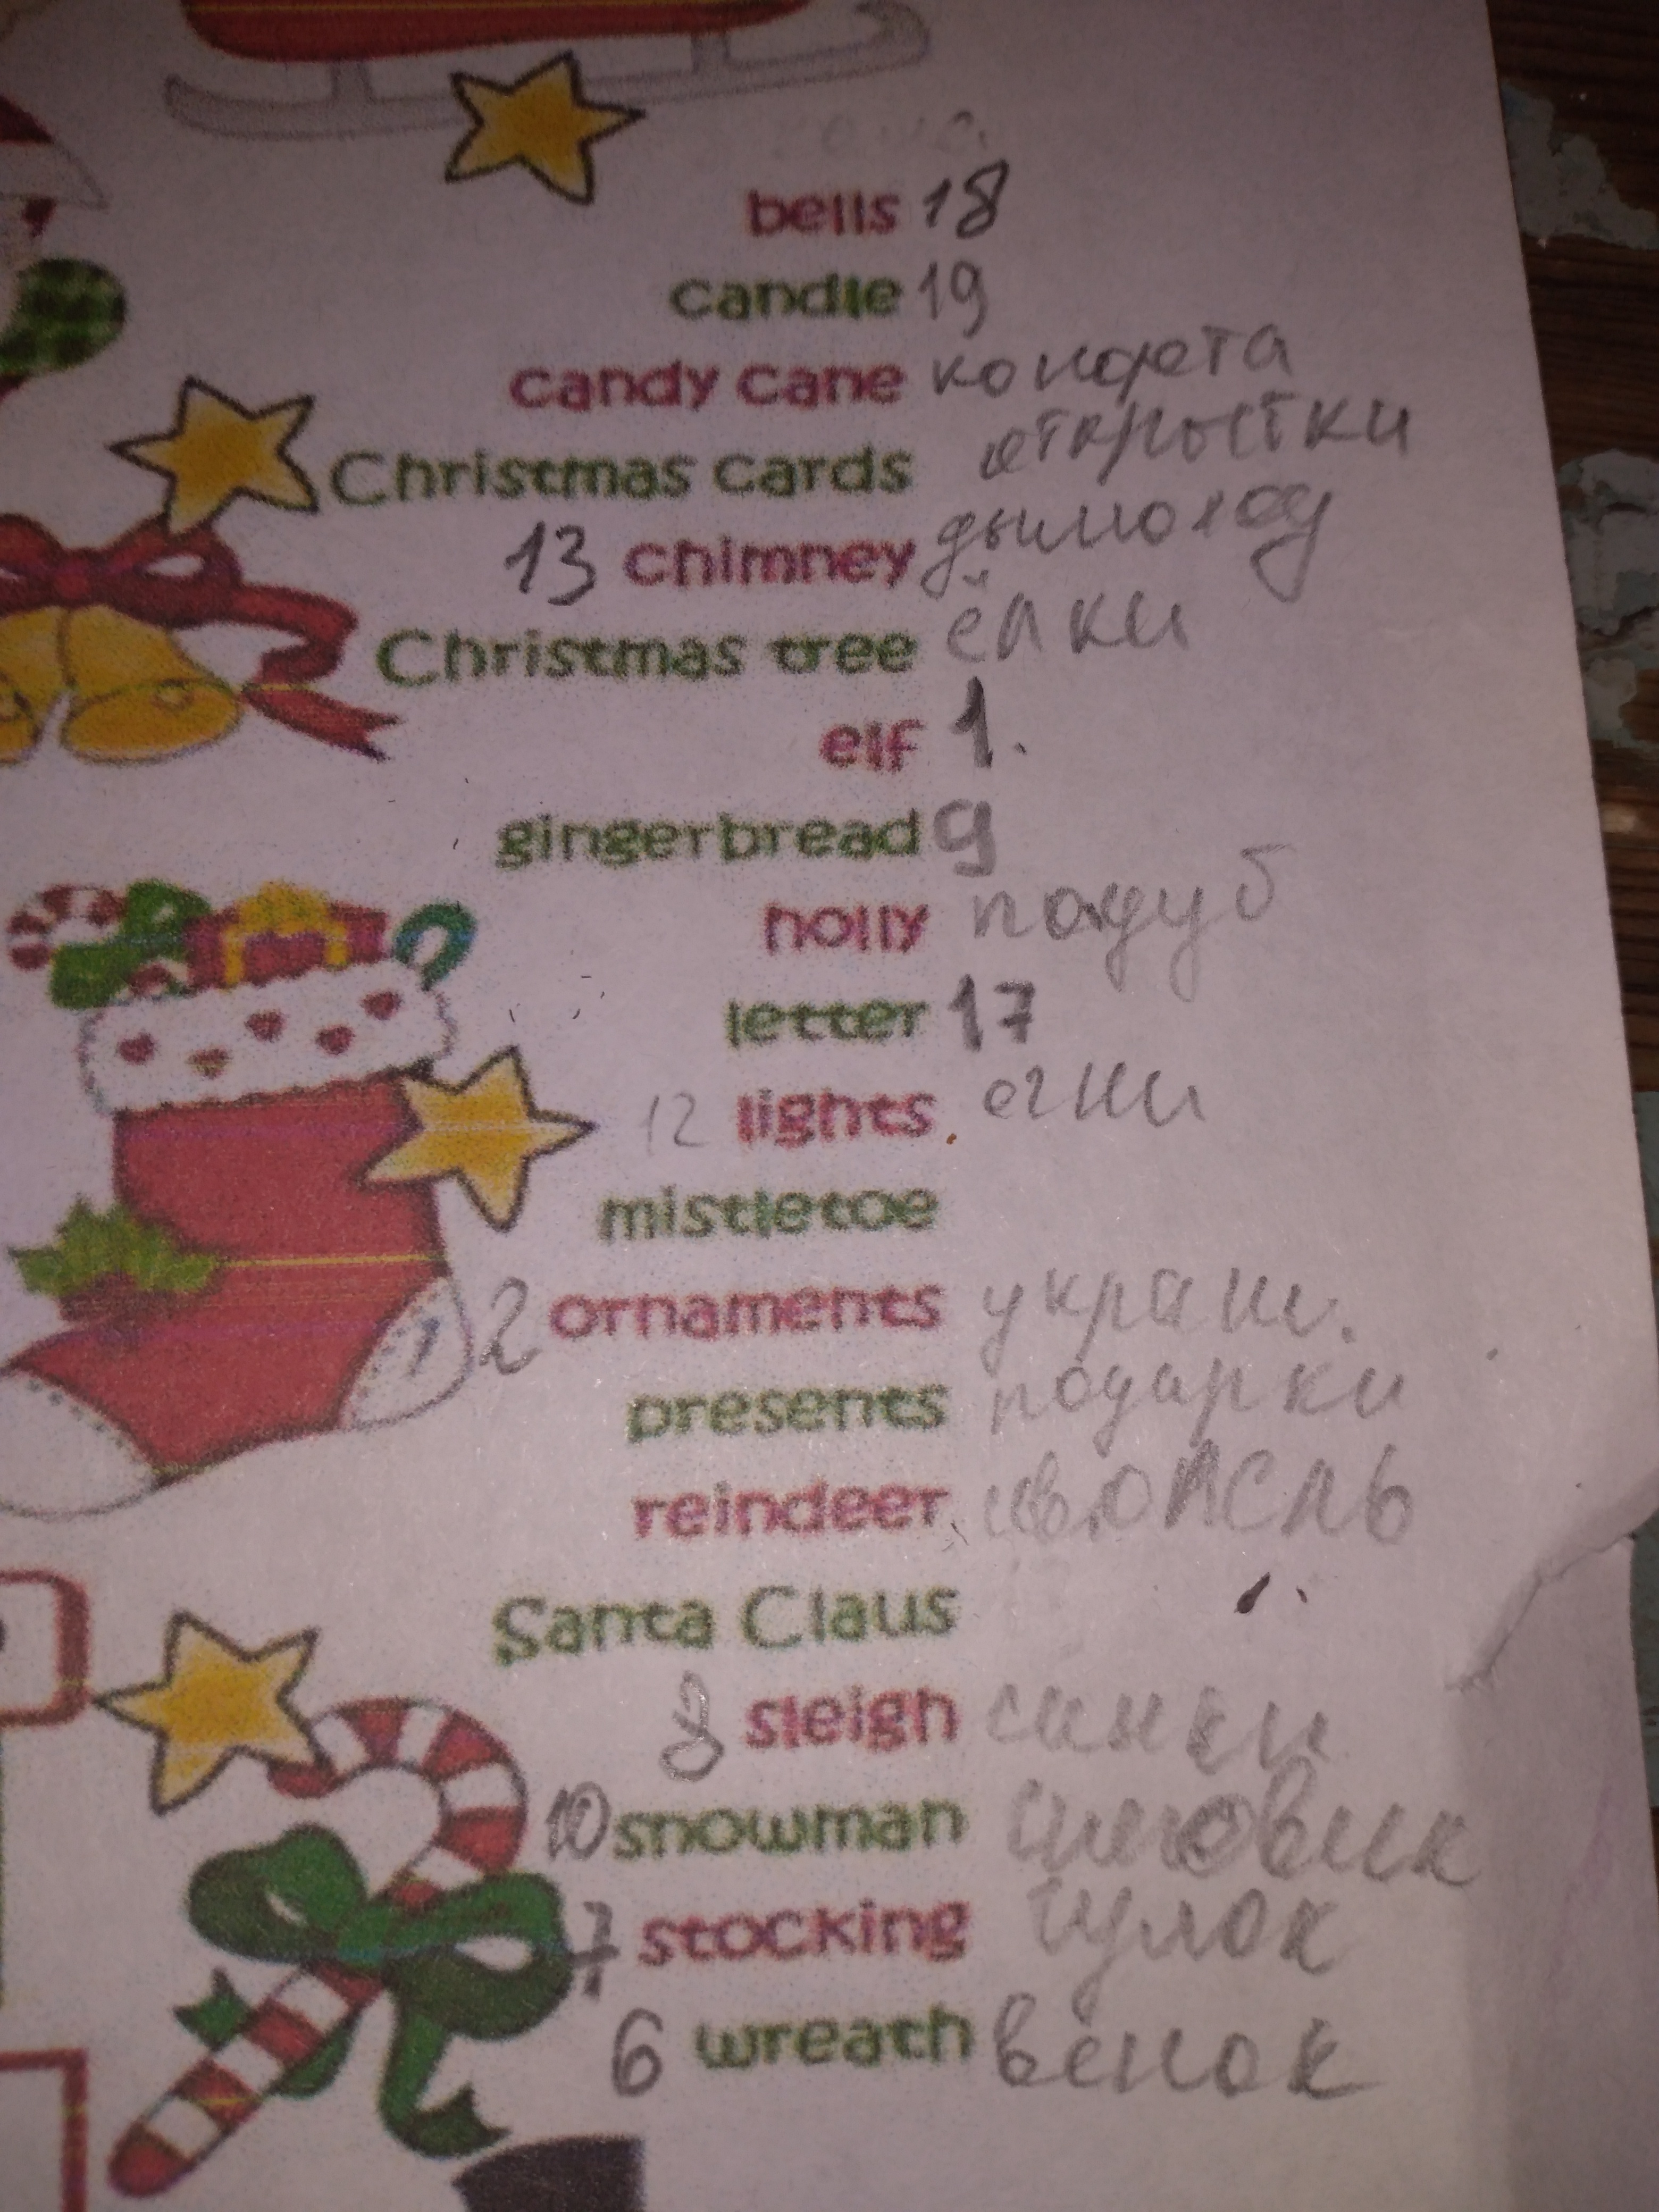 bells 18
candle 19
candy cane конфета
Christmas cards открытки
13 chimney дымоход
Christmas tree ёлки
elf 1.
gingerbread 9
holly падуб
letter 17
12 lights огни
mistletoe
2 ornaments украш.
presents подарки
reindeer
Santa Claus
8 sleigh санки
10 snowman снеговик
7 stocking чулок
6 wreath венок